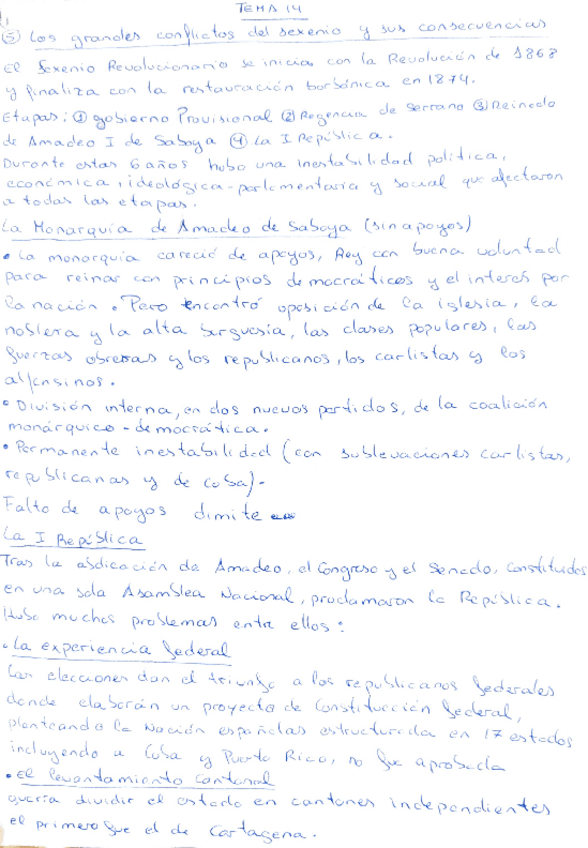 TEMA 14
⑤ Los grandes conflictos del sexenio y sus consecuencias
El Sexenio Revolucionario se inicia con la Revolución de 1868
y finaliza con la restauración borbónica en 1874.
Etapas: ① gobierno Provisional ② Regencia de Serrano ③ Reinado
de Amadeo I de Saboya ④ La I República.
Durante estas 6 años hubo una inestabilidad política,
económica, ideológica-parlamentaria y social que afectaron
a todas las etapas.
La Monarquía de Amadeo de Saboya (sin apoyos)
• La monarquía careció de apoyos, Rey con buena voluntad
para reinar con principios democráticos y el interés por
la nación. Pero encontró oposición de la iglesia, la
nobleza y la alta burguesía, las clases populares, las
fuerzas obreras y los republicanos, los carlistas y los
alfonsinos.
• División interna, en dos nuevos partidos, de la coalición
monárquico-democrática.
• Permanente inestabilidad (con sublevaciones carlistas,
republicanas y de cuba).
Falto de apoyos dimite
La I República
Tras la abdicación de Amadeo, el Congreso y el Senado, constituidos
en una sola Asamblea Nacional, proclamaron la República.
Hubo muchos problemas entre ellos:
• La experiencia federal
Las elecciones dan el triunfo a los republicanos federales
donde elaborán un proyecto de Constitución federal,
planteando la Nación españolas estructurada en 17 estados
incluyendo a Cuba y Puerto Rico, no fue aprobada
• El levantamiento Cantonal
quería dividir el estado en cantones independientes
el primero fue el de Cartagena.